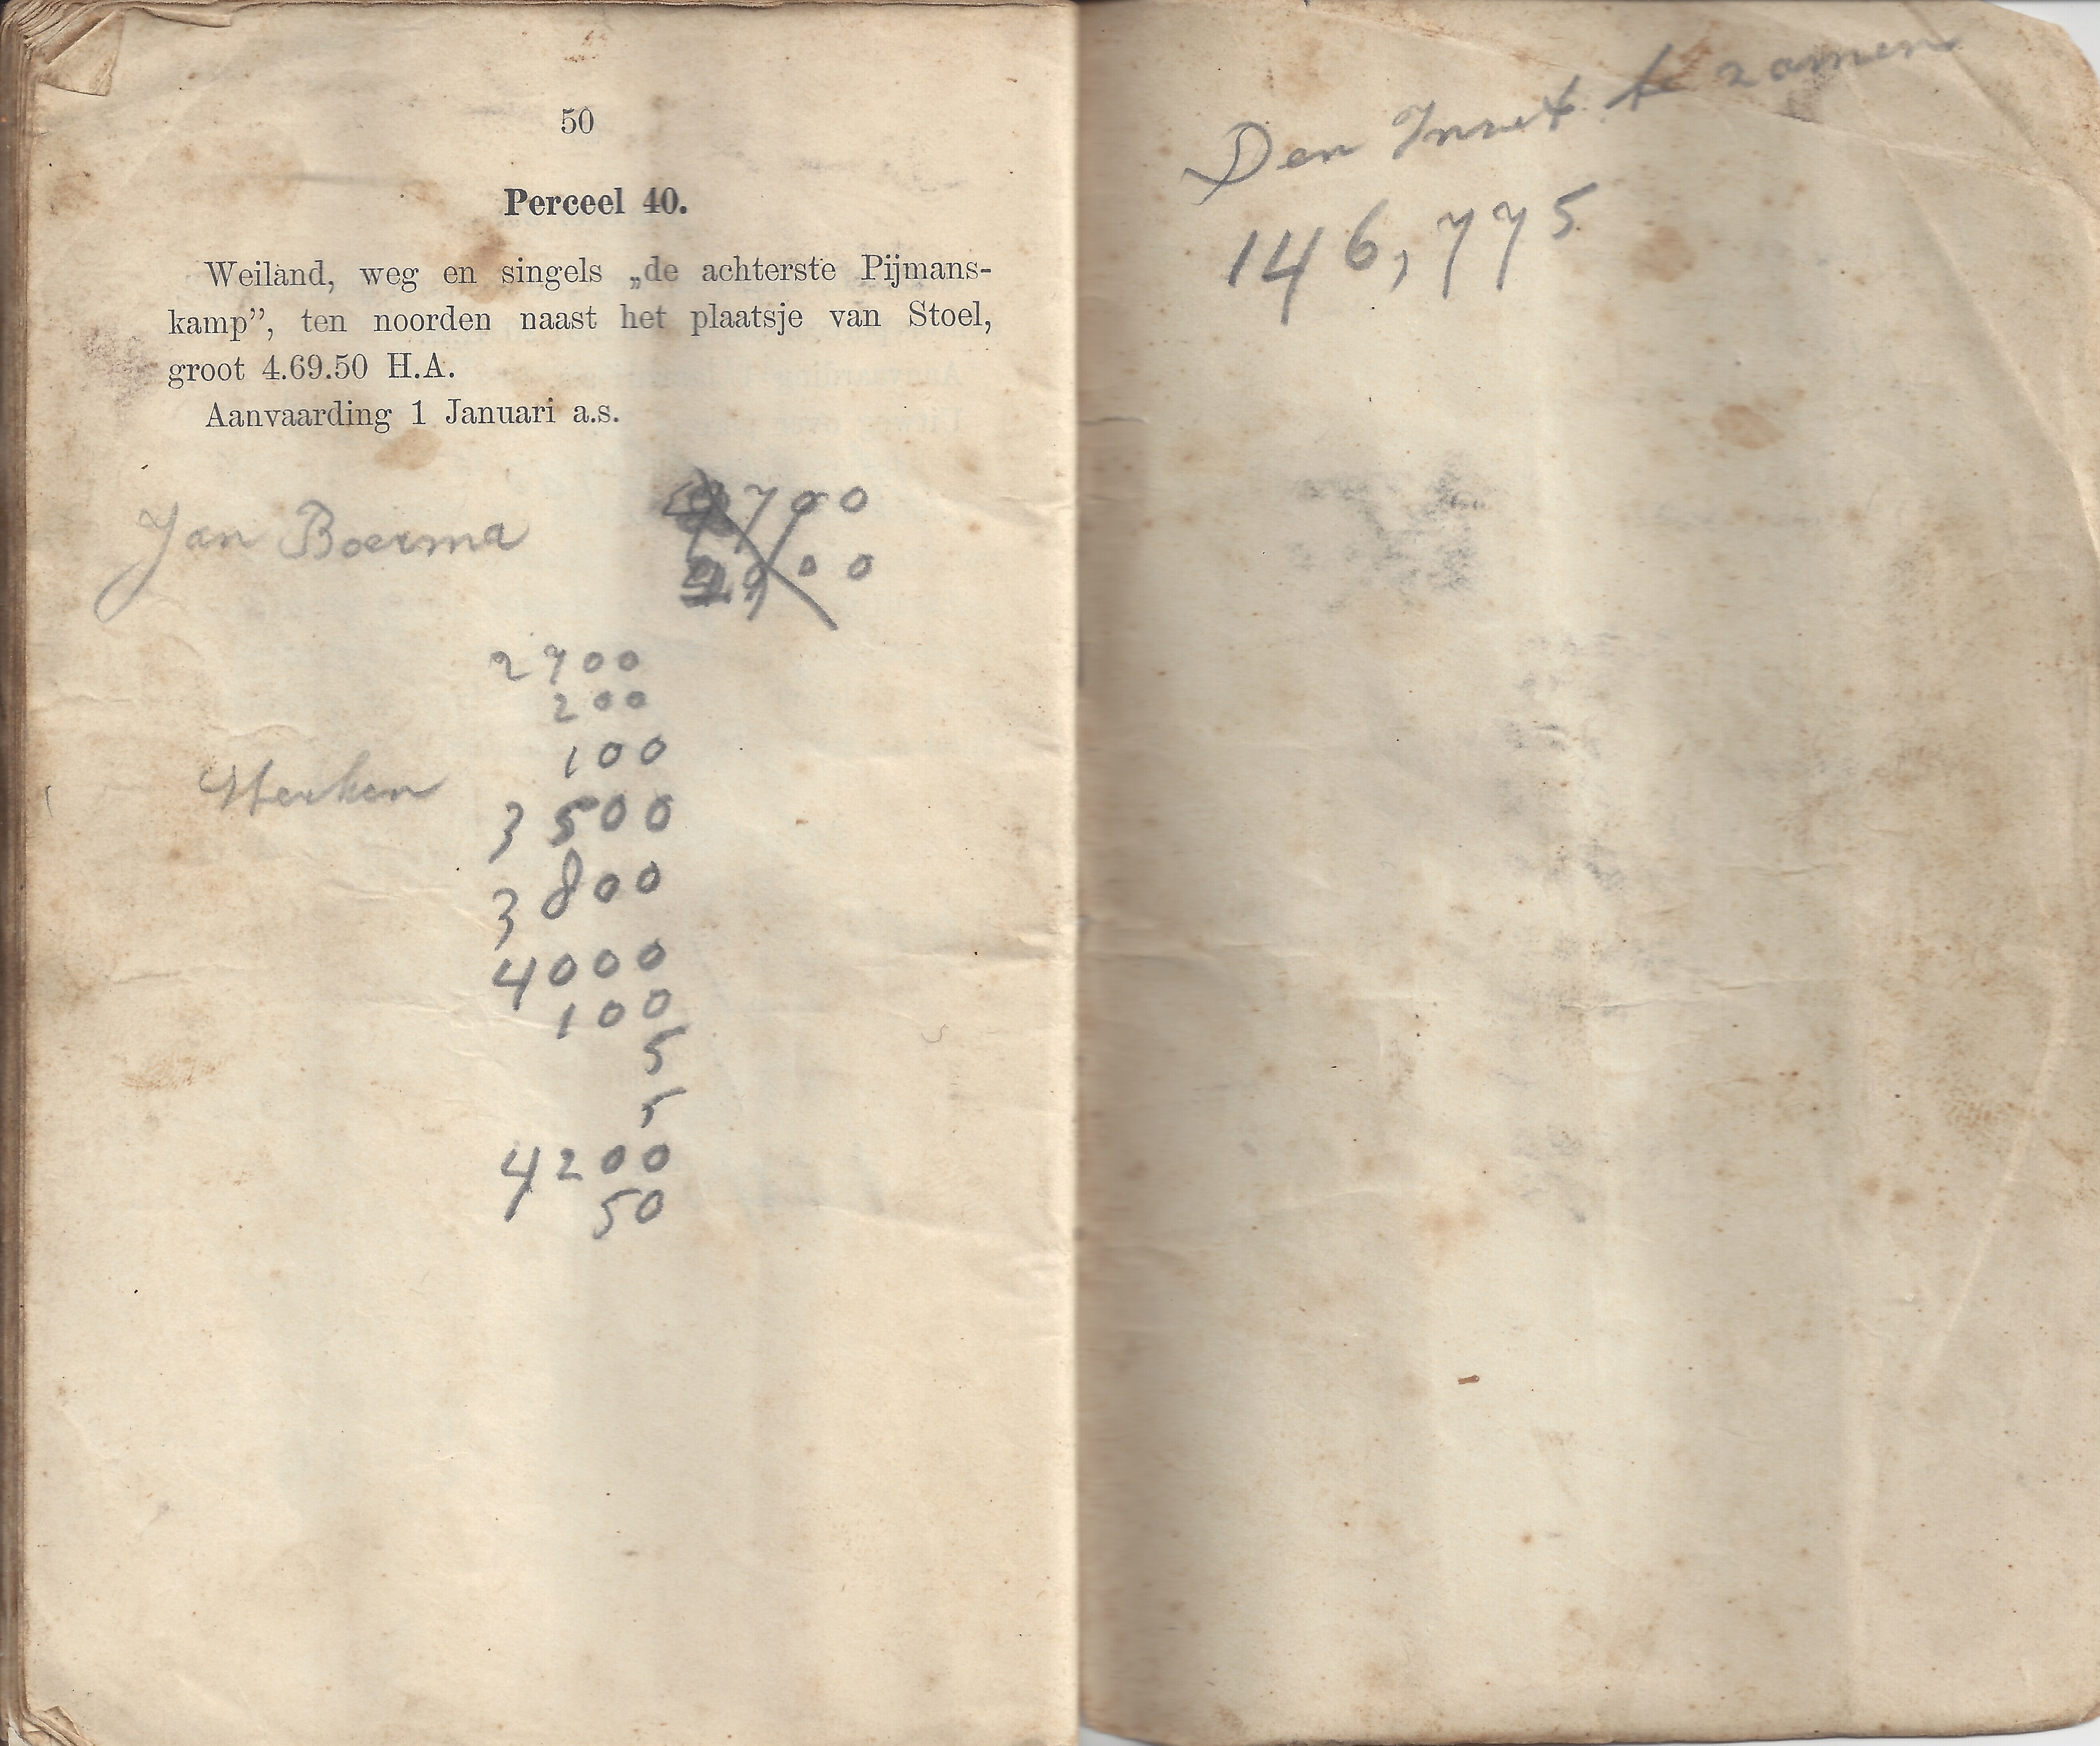 50
Perceel 40.
Weiland, weg en singels „de achterste Pijmans-
kamp”, ten noorden naast het plaatsje van Stoel,
groot 4.69.50 H.A.
Aanvaarding 1 Januari a.s.
700
Jan Boerma
00
2700
200
100
3500
3800
4000
100
5
5
4200
50
Den Inzet te zamen
146,775